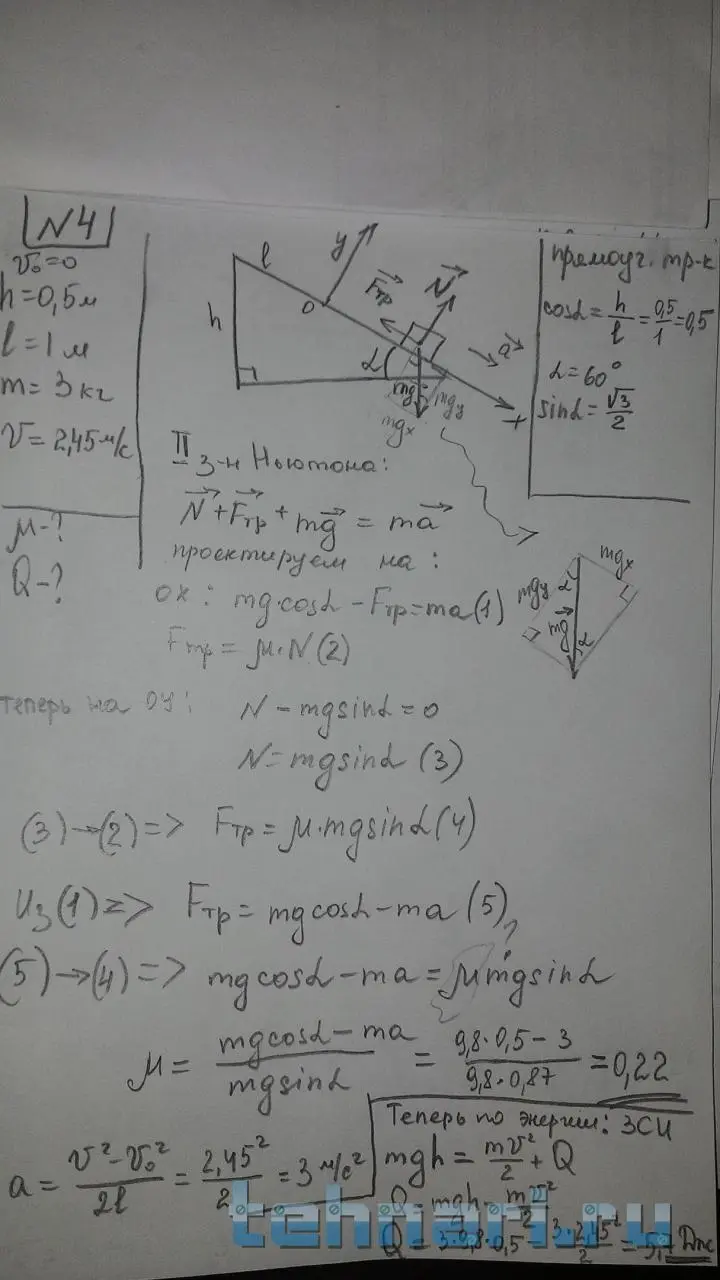 N4
v₀=0
h=0,5м
l=1м
m=3кг
v=2,45м/с
μ-?
Q-?
l
y
h
0
Fтр
N
a
α
mg
mgy
mgx
x
прямоуг. тр-к
cosα = h/l = 0,5/1 = 0,5
α=60°
sinα = √3/2
II з-н Ньютона:
N+Fтр+mg = ma
проектируем на:
ox: mg·cosα - Fтр=ma(1)
Fтр = μ·N(2)
mgx
mgy
α
mg
α
теперь на oy: N - mgsinα = 0
N = mgsinα (3)
(3)→(2)=> Fтр = μ·mgsinα(4)
Из(1)=> Fтр = mgcosα - ma (5),
(5)→(4)=> mgcosα - ma = μmgsinα
μ = (mgcosα - ma)/(mgsinα) = (9,8·0,5 - 3)/(9,8·0,87) = 0,22
a = (v² - v₀²)/2l = 2,45²/2 = 3 м/с²
Теперь по энергии: ЗСИ
mgh = mv²/2 + Q
Q = mgh - mv²/2
Q = 3·9,8·0,5 - 3·2,45²/2 = 5,7 Дж
tehnari.ru